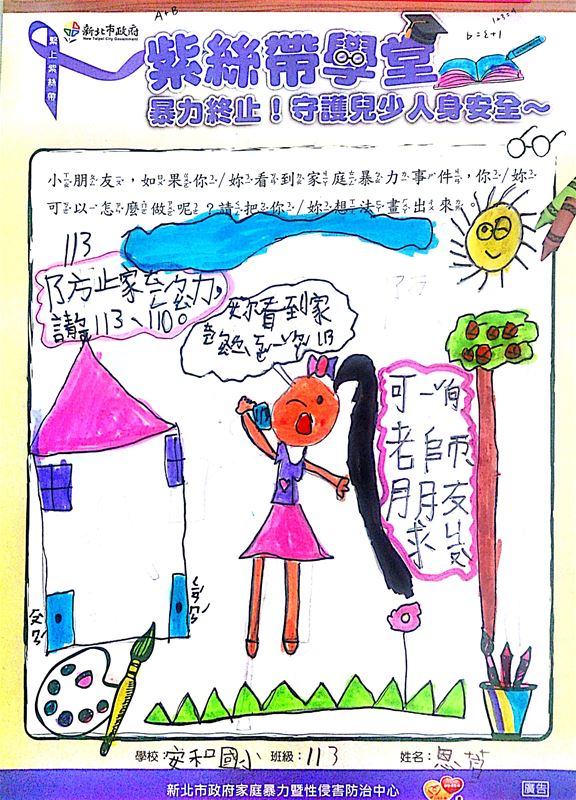 A+B
1+3=4
b=ε+1
繫上紫絲帶
新北市政府
New Taipei City Government
紫絲帶學堂
暴力終止！守護兒少人身安全～
小朋友，如果你/妳看到家庭暴力事件，你/妳
可以怎麼做呢？請把你/妳想法畫出來。
113
ㄗ方止家
力，
113、110。
妳看到家
113
可
老師
朋友
求
學校：安和國小 班級：113 姓名：恩
新北市政府家庭暴力暨性侵害防治中心
廣告